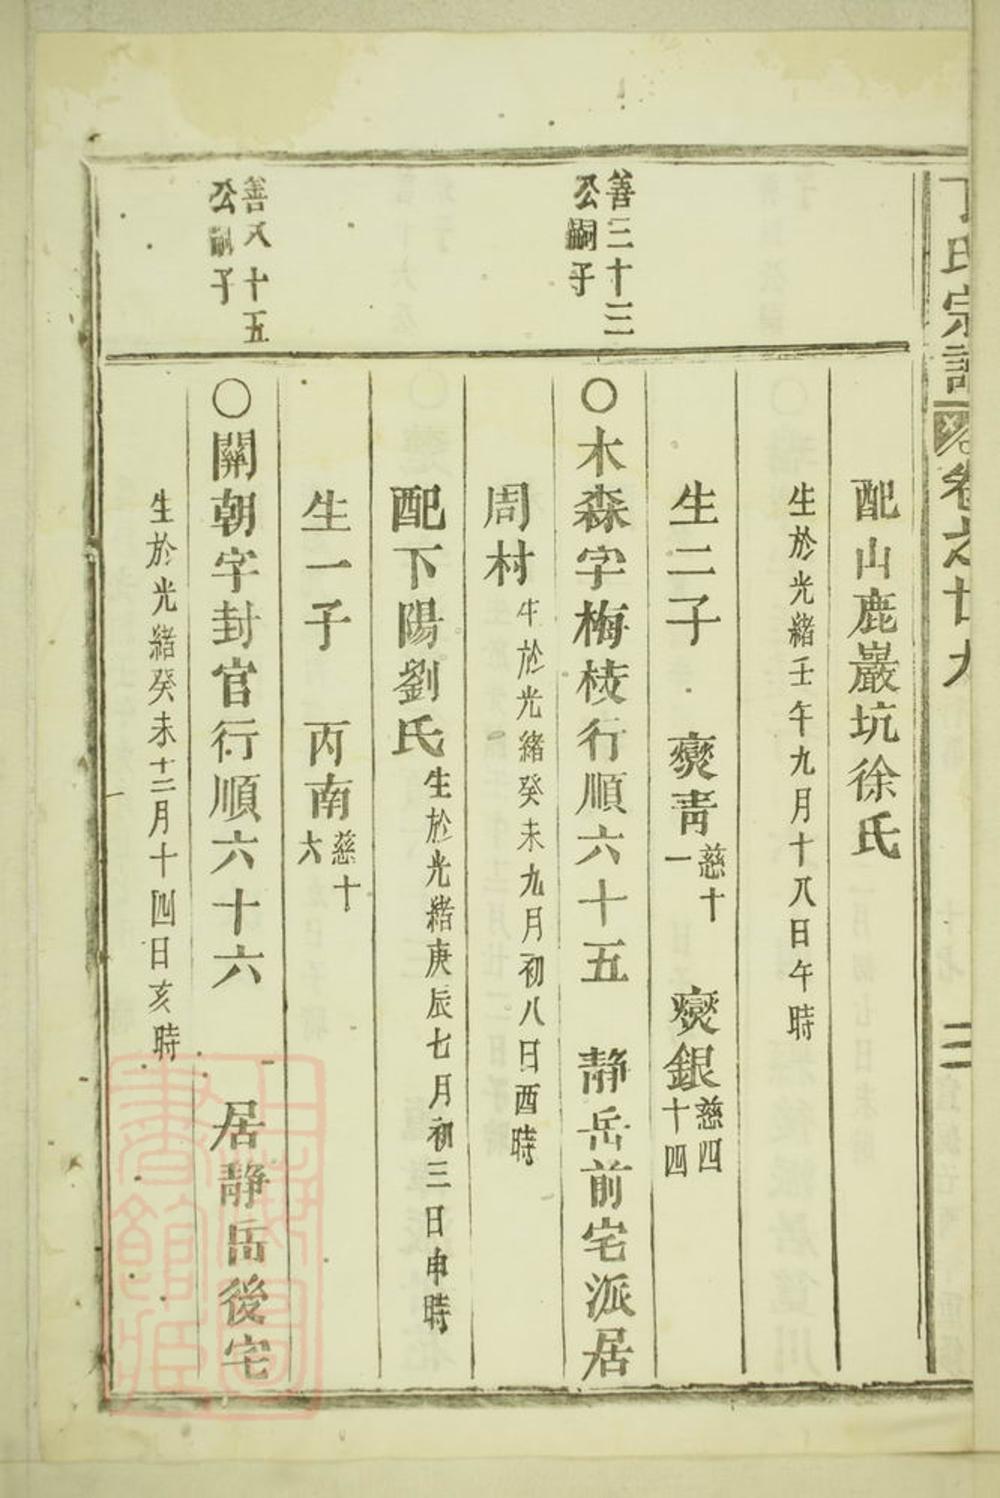 丁氏宗譜
卷之廿九
二
配山鹿巖坑徐氏
生於光緒壬午九月十八日午時
生二子 燮青慈十一 燮銀慈四十四
善三十三公嗣子
〇木森字梅棱行順六十五 静岳前宅派居
周村生於光緒癸未九月初八日酉時
配下陽劉氏生於光緒庚辰七月初三日申時
生一子 丙南慈十六
善八十五公嗣子
〇關朝字封官行順六十六 居静岳後宅
生於光緒癸未十二月十四日亥時
上海圖書館藏